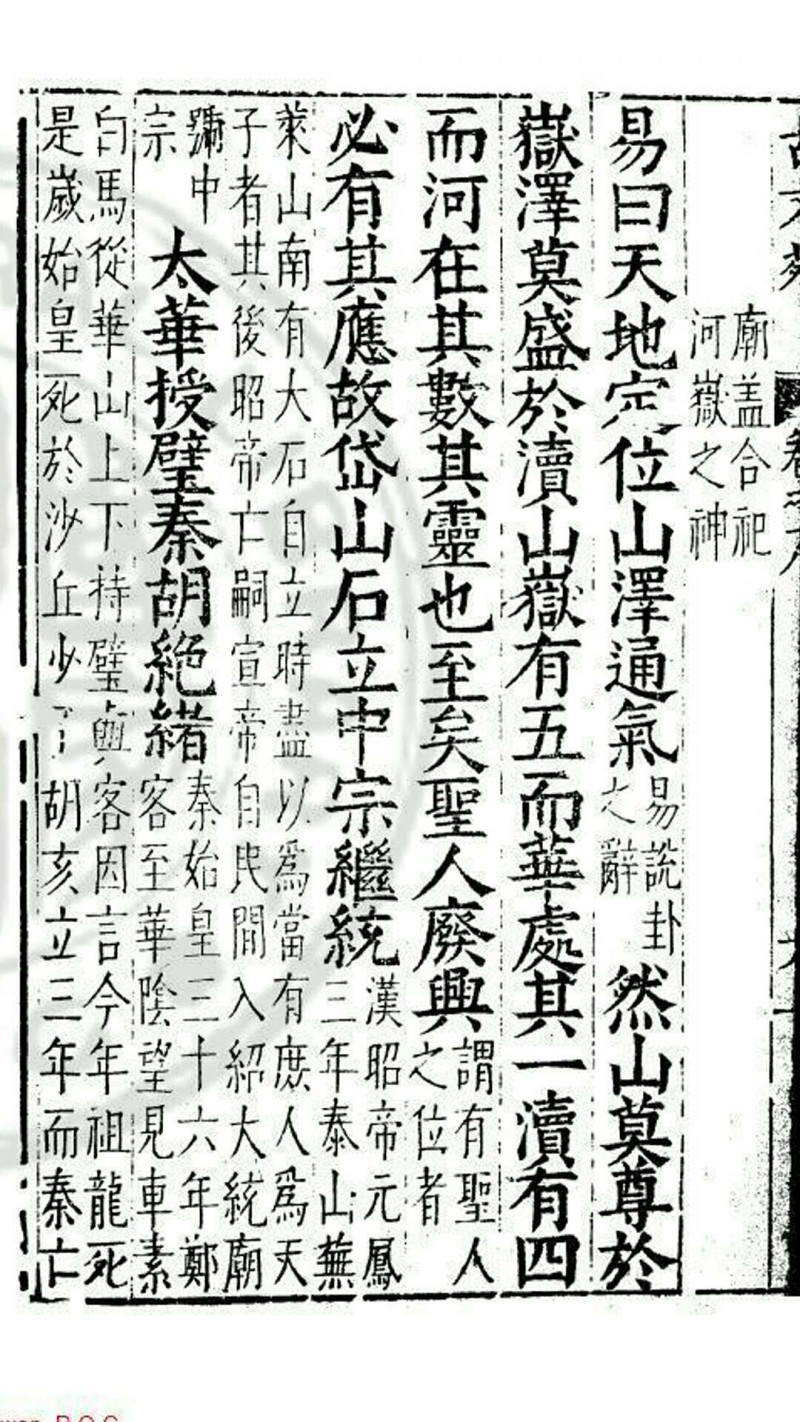 廟盖合祀
河嶽之神
易曰天地定位山澤通氣易說卦之辭然山莫尊於
嶽澤莫盛於瀆山嶽有五而華處其一瀆有四
而河在其數其靈也至矣聖人廢興謂有聖人之位者
必有其應故岱山石立中宗繼統漢昭帝元鳳三年泰山蕪
萊山南有大石自立時盡以為當有庶人為天
子者其後昭帝亡嗣宣帝自民間入紹大統廟
號中宗太華授璧秦胡絶緒秦始皇三十六年鄭客至華陰望見車素
白馬從華山上下持璧與客因言今年祖龍死
是歲始皇死於沙丘少子胡亥立三年而秦亡